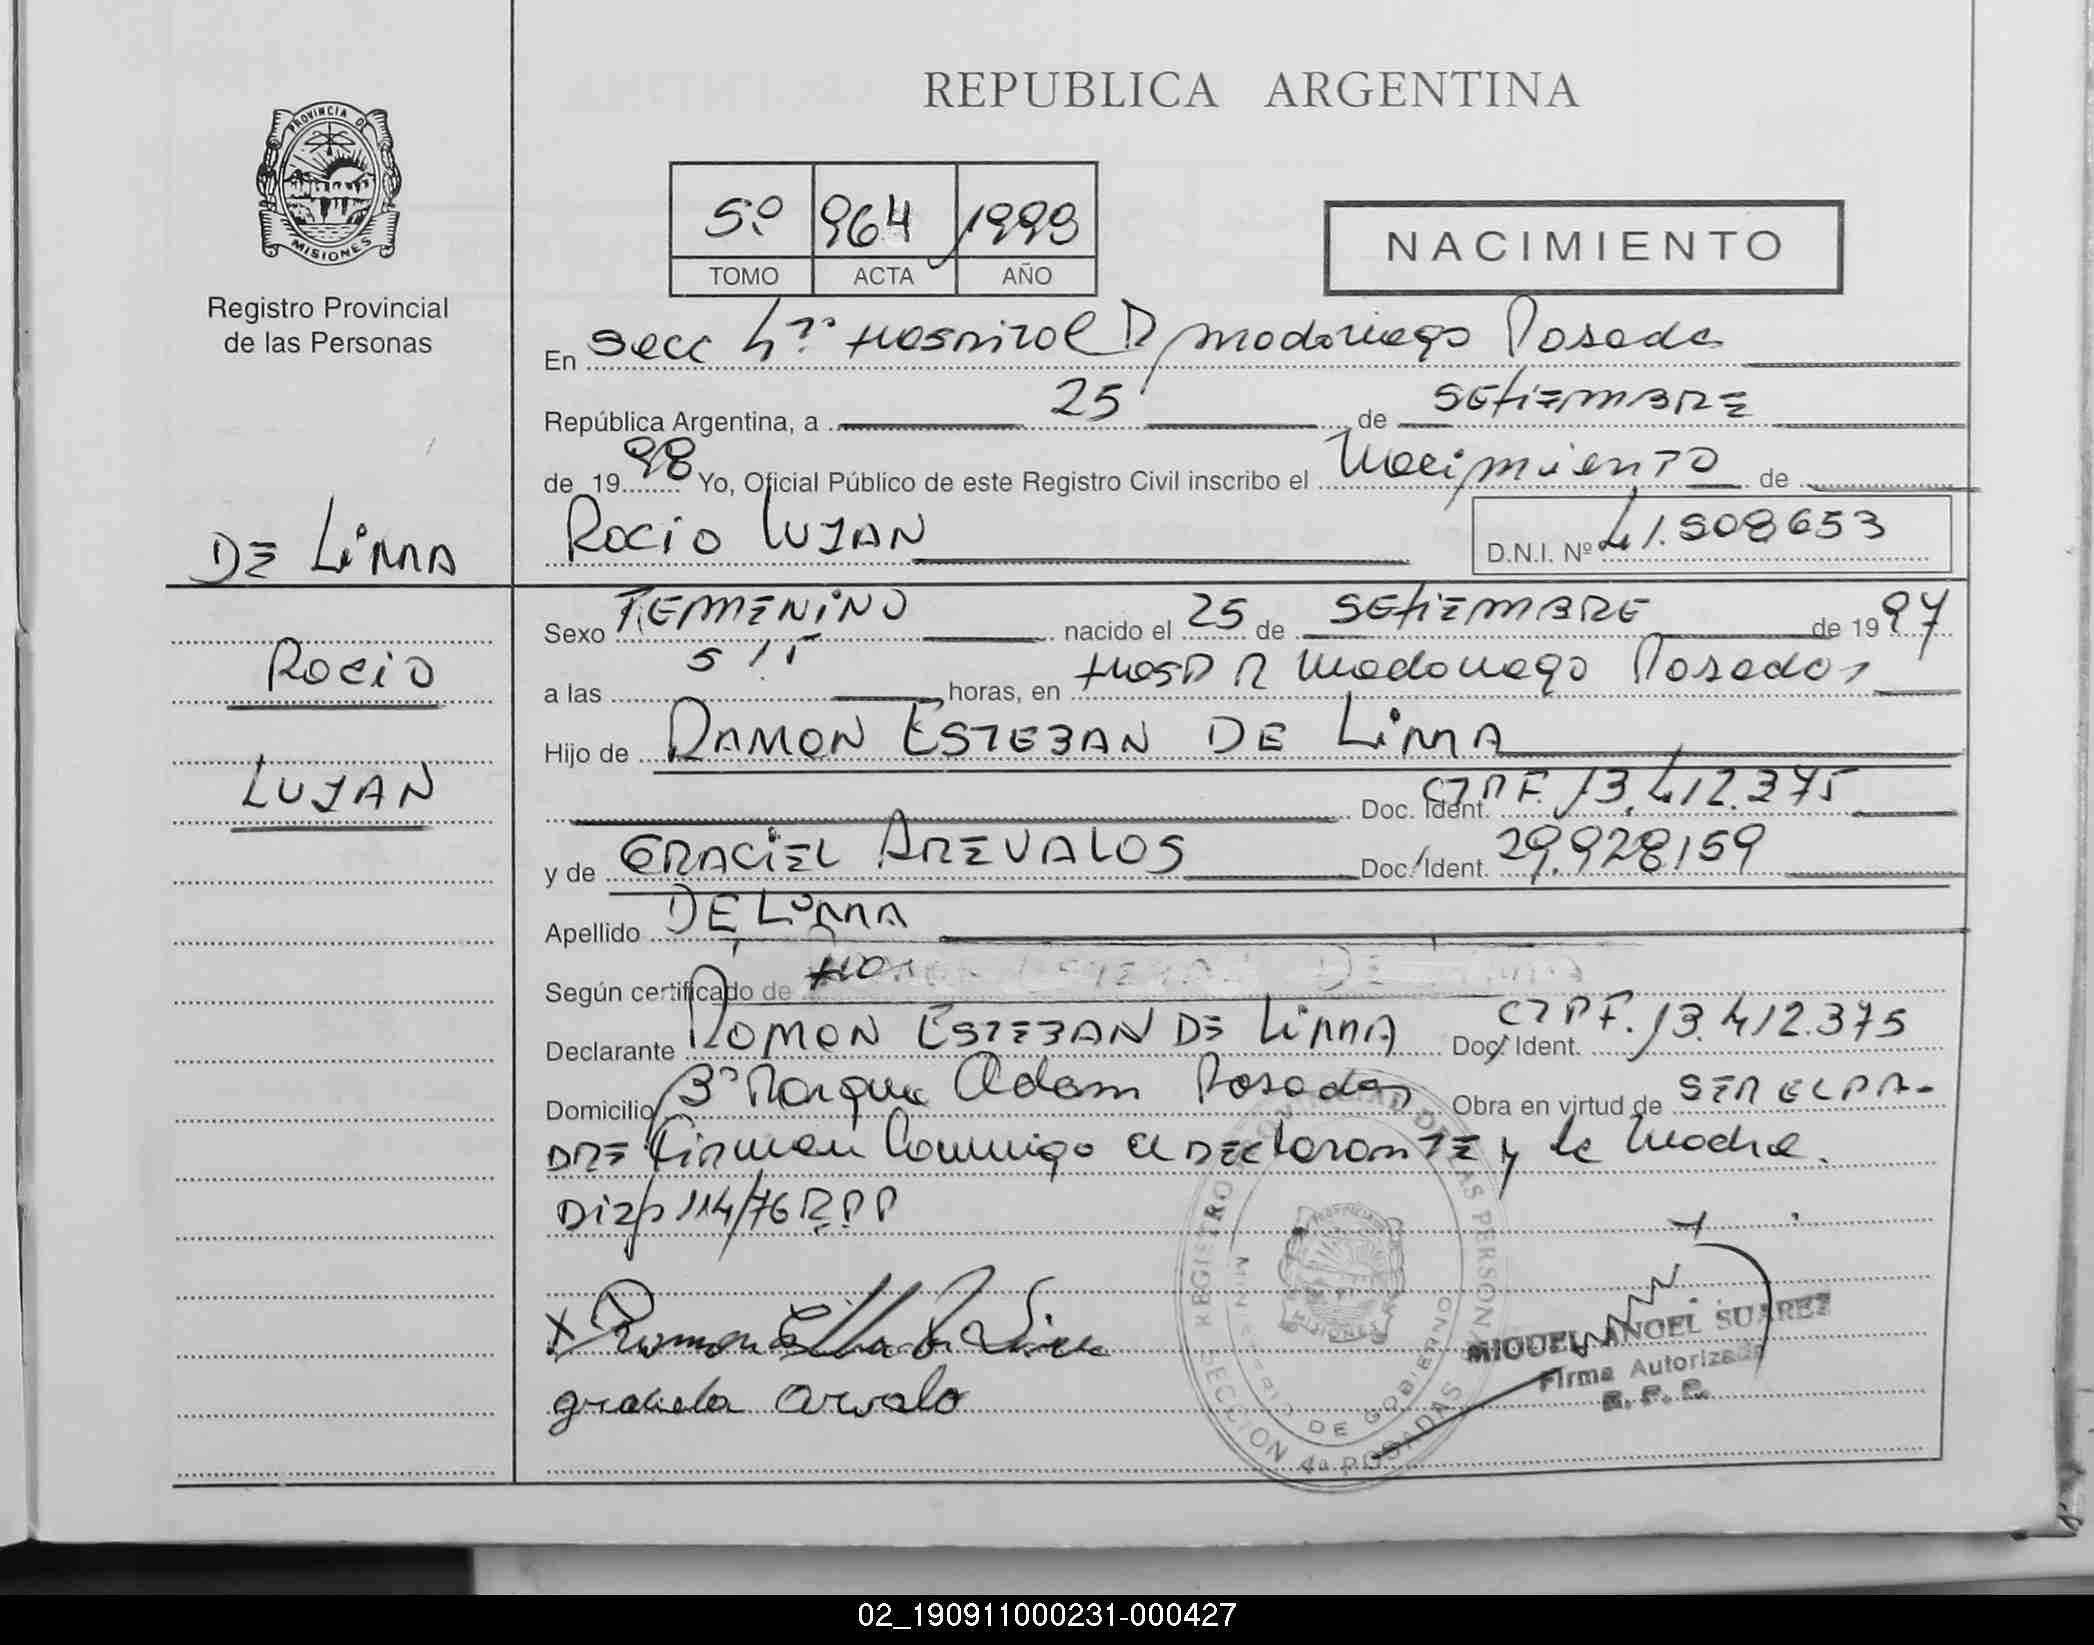 REPUBLICA ARGENTINA
PROVINCIA DE
MISIONES
Registro Provincial
de las Personas
5º 964 1998
TOMO ACTA AÑO
NACIMIENTO
En Secc 4ª Hospital R Madariaga Posadas
República Argentina, a 25 de SETIEMBRE
de 1998 Yo, Oficial Público de este Registro Civil inscribo el Nacimiento de
ROCIO LUJAN D.N.I. Nº 41.508653
DE LIMA
ROCIO
LUJAN
Sexo FEMENINO nacido el 25 de SETIEMBRE de 1997
a las horas, en Hosp R Madariaga Posadas
Hijo de RAMON ESTEBAN DE LIMA
Doc. Ident. CIPF. 13.412.375
y de GRACIEL AREVALOS Doc. Ident. 29.928159
Apellido DE LIMA
Según certificado de
Declarante RAMON ESTEBAN DE LIMA Doc. Ident. CIPF. 13.412.375
Domicilio Bº Parque Adam Posadas Obra en virtud de SER EL PA-
DRE Firman Conmigo el DEClaranTE y la Madre.
Disp 114/76 R.P.P
Ramon Esteban De Lima
graciela arevalo
REGISTRO PROVINCIAL DE LAS PERSONAS
MINISTERIO DE GOBIERNO
SECCION 4ª POSADAS
MIGUEL ANGEL SUAREZ
Firma Autorizada
R. P. P.
02_190911000231-000427